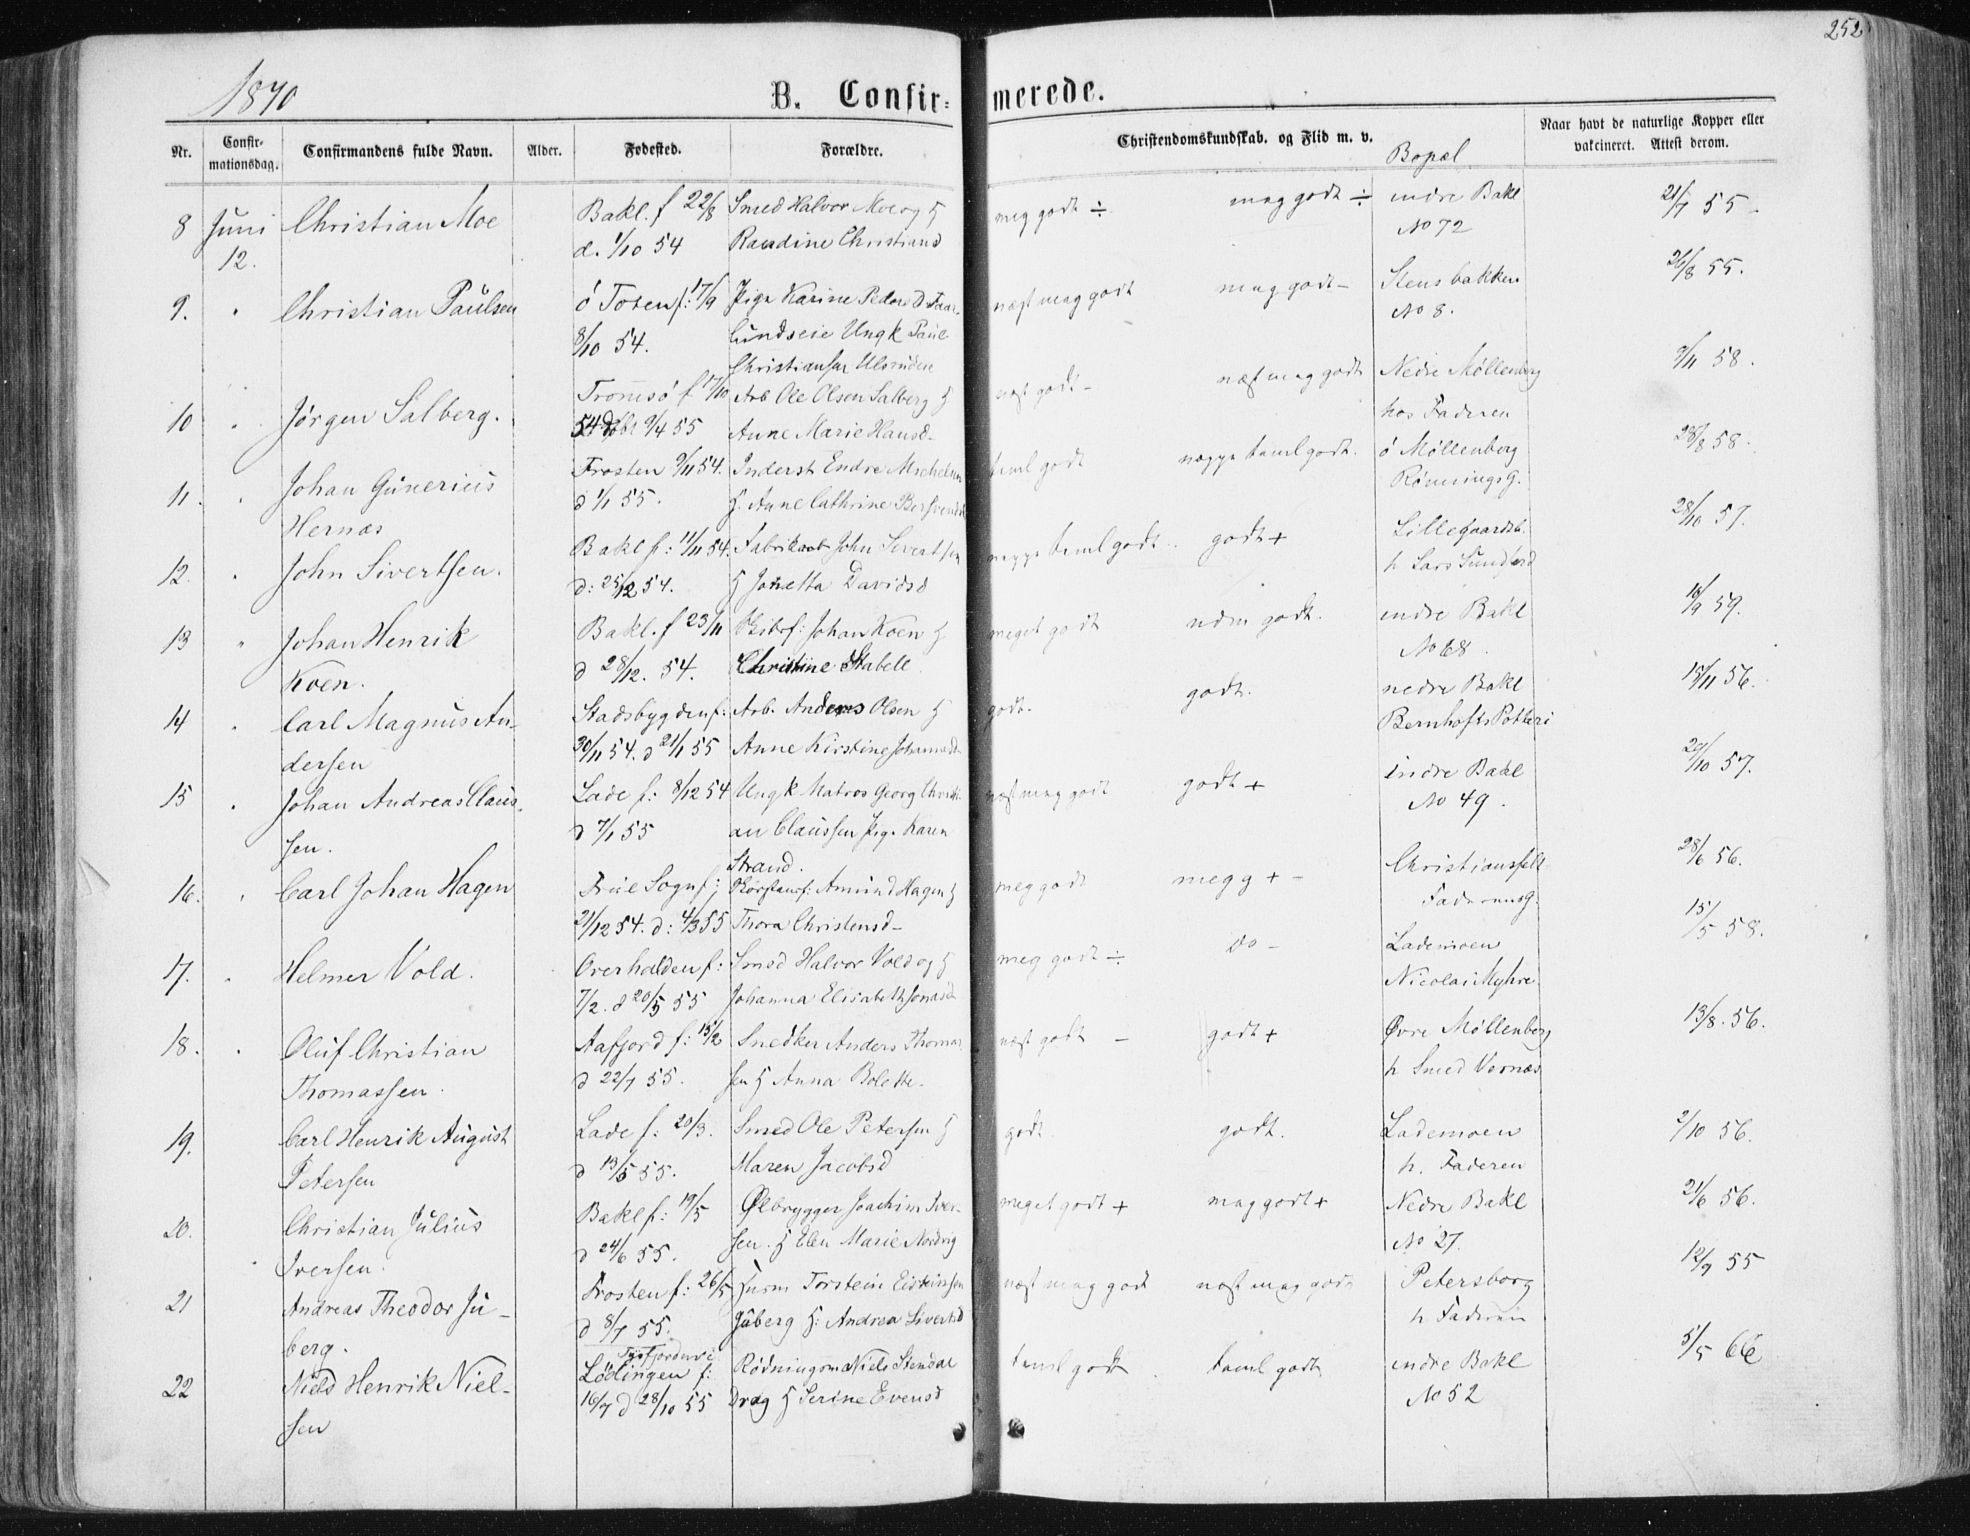 252
1870
B. Confir-
merede.
Nr.
Confir-
mationsdag.
Confirmandens fulde Navn.
Alder.
Fødested.
Forældre.
Christendomskundskab. og Flid m. v.
Bopæl
Naar havt de naturlige Kopper eller
vakcineret. Attest derom.
8 Juni Christian Moe Bakl. f 22/8 Smed Halvor Moe og H meg godt ÷ meg godt ÷ indre Bakl 21/7 55
12. d. 1/10 54 Randine Christiansd No 72
9. " Christian Paulsen ö Toten f: 17/9 Pige Karine Peders D næst meg godt meg godt - Stensbakken 26/8 55.
8/10 54. lundseie Ungk Paul No 8.
Christiansen Ulsruden
10 " Jörgen Salberg. Tromsö f 17/10 Arb Ole Olsen Salberg H næst godt - næst meg godt Nedre Möllenberg 9/11 58.
54 döbt 9/4 55 Anne Marie Hansd- hos Faderen
11. " Johan Gunerius Frosten 9/11 54. Inderst Endre Michelsen taml godt neppe taml godt. ö Möllenberg 28/8 58.
Hernæs d 1/1 55. H. Anne Cathrine Rönningsg.
12. " John Sivertsen. Bakl f: 11/11 54. Fabrikarb John Sivertsen neppe taml godt .. godt + Lillegaardsb. 28/10 57.
d: 25/12 54. H Jonetta Davidsd h Lars Sundland
13 " Johan Henrik Bakl. f 23/11 Skibsf: Johan Koen H meget godt udm godt. indre Bakl 16/9 59.
Koen. d 28/12. 54. Christine Stabell. No 68.
14 " Carl Magnus An- Stadsbygden f: Arb. Anders Olsen H godt. godt. nedre Bakl 15/11 56.
dersen 30/11 54. d 21/1 55 Anne Kirstine Johannesd Bernhofts Potteri
15 " Johan Andreas Claus- Lade f: 8/12 54 Ungk Matros Georg Christi næst meg godt godt + indre Bakl 20/10 57.
sen. d 7/1 55 an Claussen Pige Karen No 49.
Strand.
16. " Carl Johan Hagen Frue Sogn f; Amund Hagen H meg godt meg g + - Christiansfelt 28/6 56.
21/12 54. d: 4/3 55 Thora Christensd- Faderensg.
17. " Helmer Vold. Overhalden f: Smed Halvor Vold og H meg godt ÷ do - Lademoen 15/5 58.
7/2. d 20/5 55 Johanna Elisabeth Jonasd Nicolai Myhre
18. " Oluf Christian Aafjord f: 15/2 Snedker Anders Thomas næst godt - godt + Øvre Möllenberg 13/8. 56.
Thomassen. d 22/7 55. sen H Anna Bolette. h Smed Vernæs
19. Carl Henrik August Lade f: 20/3. Smed Ole Petersen H godt. godt. Lademoen 2/10 56.
Petersen d 13/5 55. Maren Jacobsd h. Faderen
20. Christian Julius Bakl f: 19/5 Ølbrygger Joachim Iver- meget godt + meg godt + Nedre Bakl 21/6 56.
Iversen. d 24/6 55. sen. H Elen Marie Nordvig No 27.
21 Andreas Theodor Ju- Frosten f: 26/5 Husm Torstein Eisteinsen næst meg godt næst meg godt Petersborg 12/9 55
berg. d 8/7 55. Juberg H: Andrea Sivertsd h Faderen
22 Niels Henrik Niel- Tysfjorden i Lödingen f: Rödningsm Niels Stendal taml godt taml godt indre Bakl 5/5 66
sen 16/7 d 28/10 55 Drag H Serine Evensd No 52